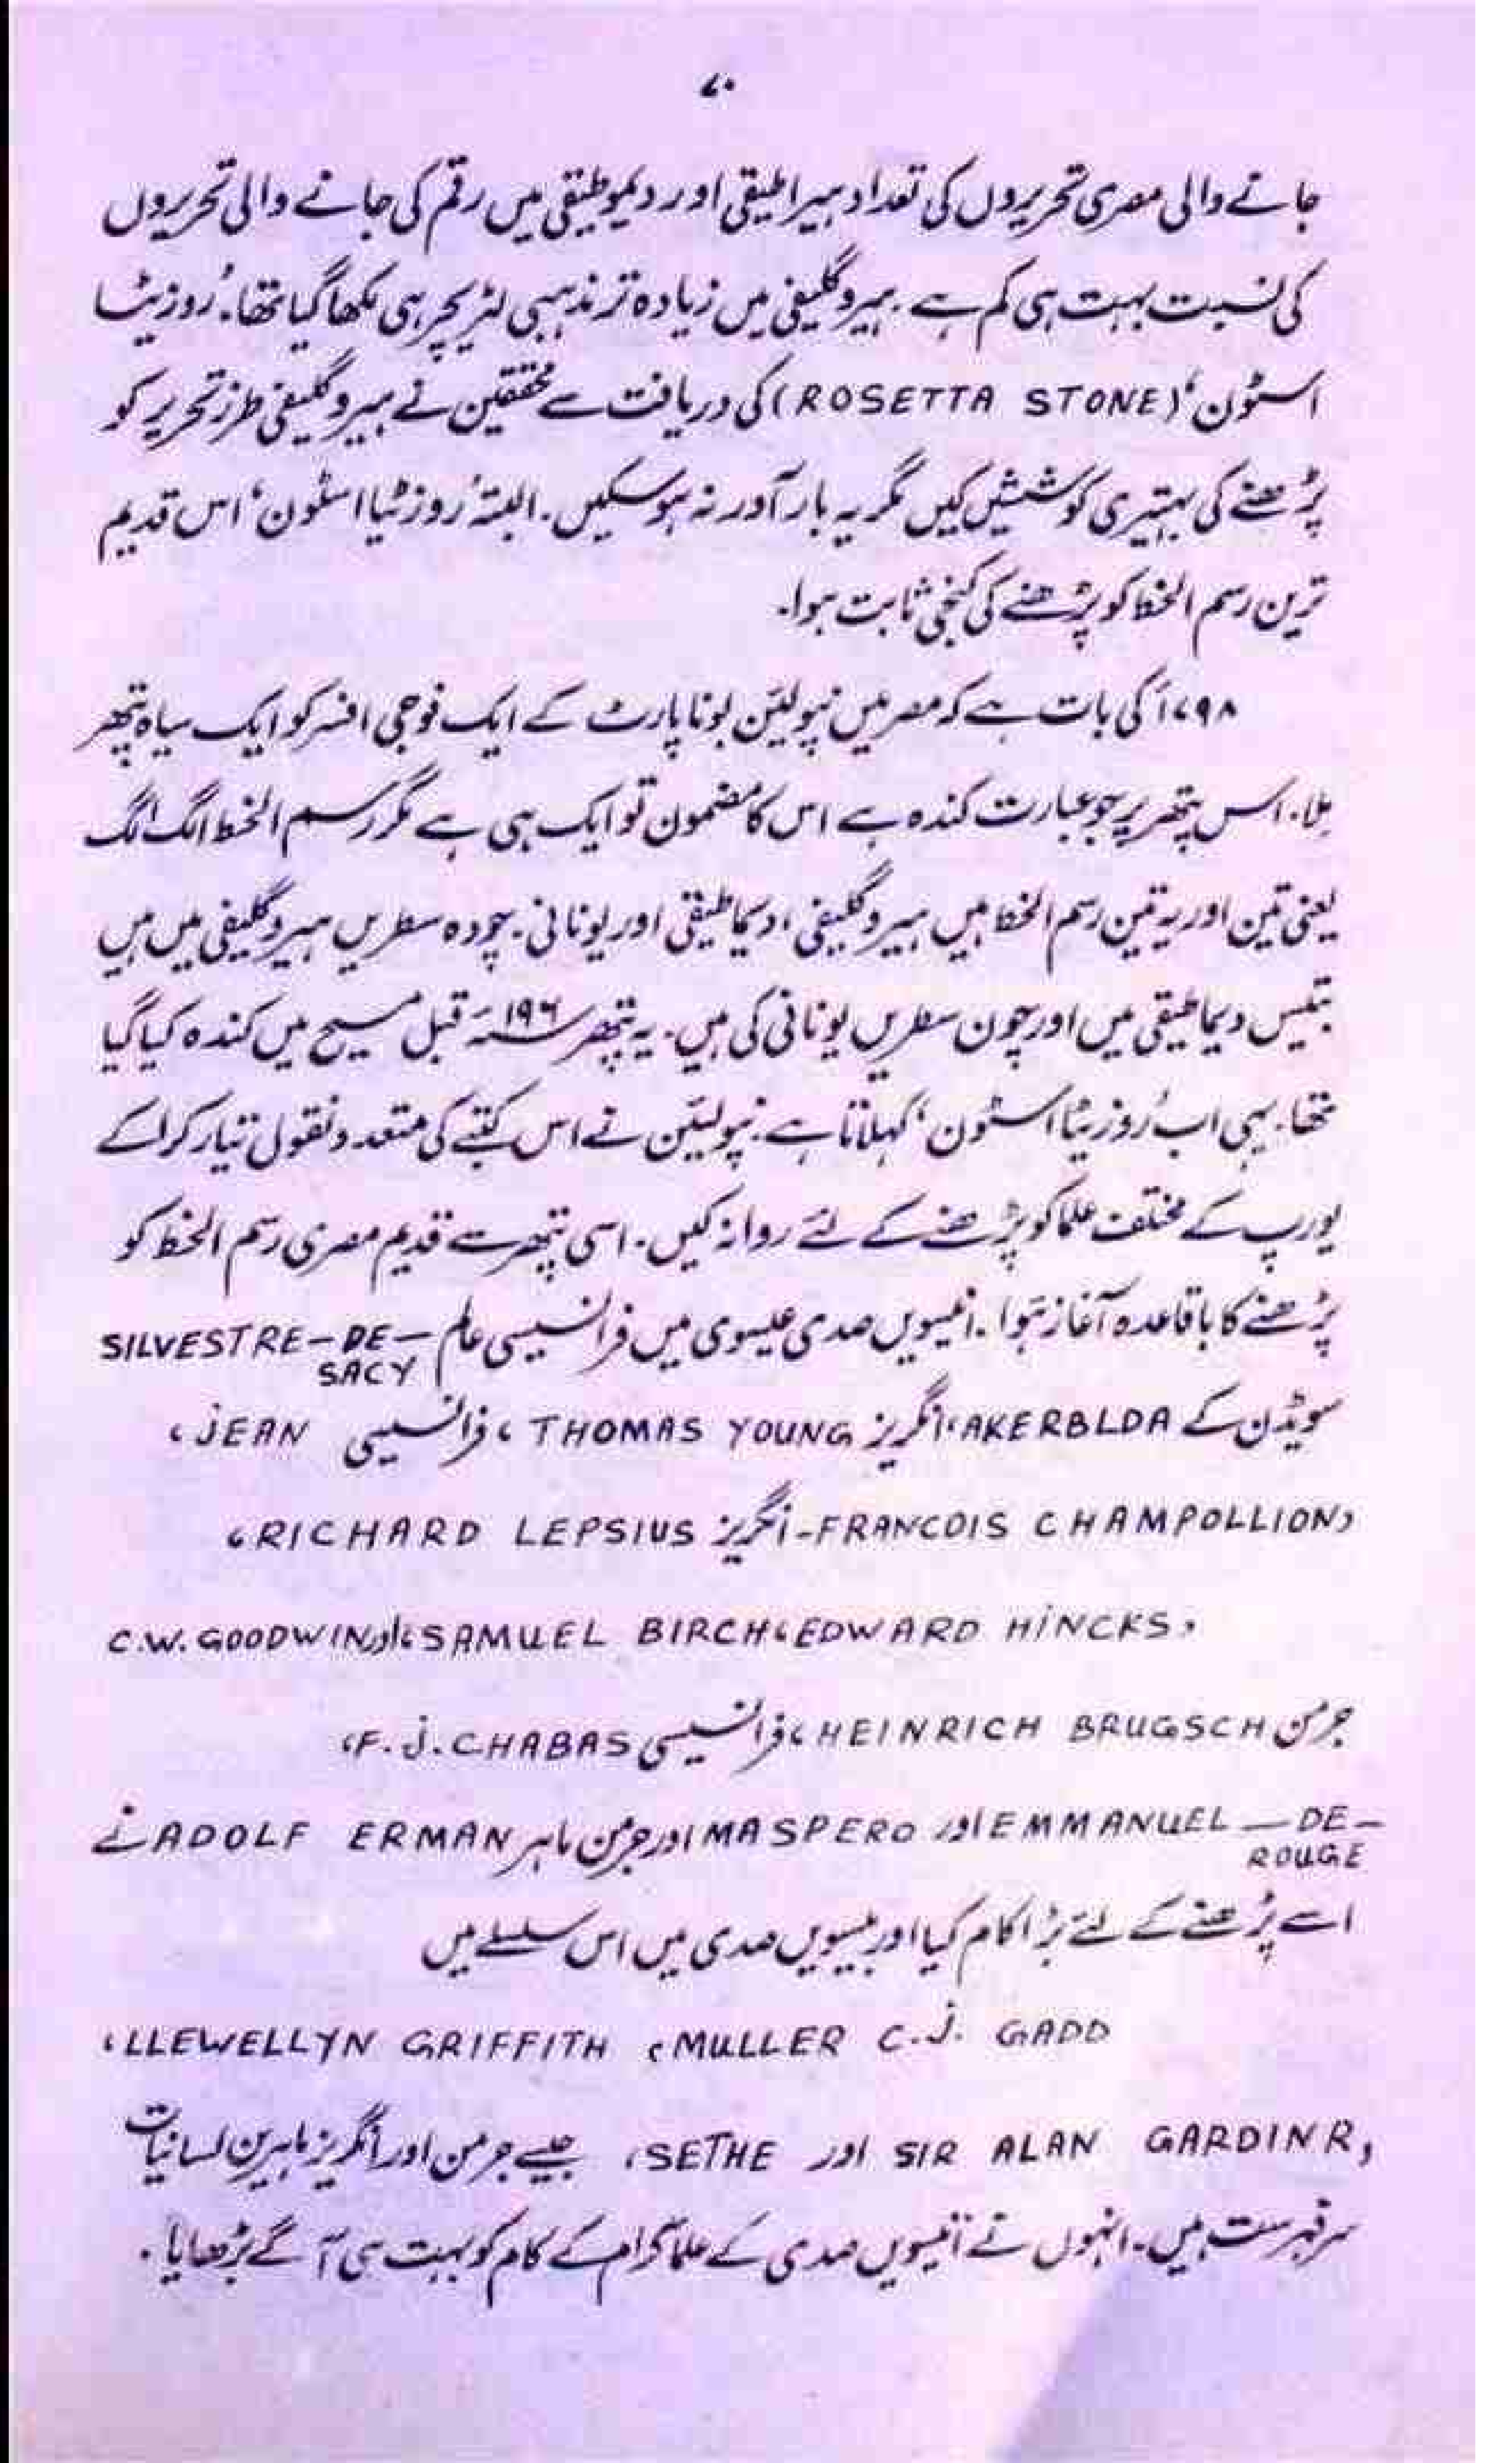 ۷۰
جانے والی مصری تحریروں کی تعداد ہیراطیقی اور دیموطیقی میں رقم کی جانے والی تحریروں
کی نسبت بہت ہی کم ہے۔ ہیروگلیفی میں زیادہ تر مذہبی لٹریچر ہی لکھا گیا تھا۔ 'روزیٹا
اسٹون' (ROSETTA STONE) کی دریافت سے محققین نے ہیروگلیفی طرز تحریر کو
پڑھنے کی بہتیری کوششیں کیں مگر یہ بار آور نہ ہو سکیں۔ البتہ 'روزٹیا اسٹون' اس قدیم
ترین رسم الخط کو پڑھنے کی کنجی ثابت ہوا۔
۱۷۹۸ء کی بات ہے کہ مصر میں نپولیئن بونا پارٹ کے ایک فوجی افسر کو ایک سیاہ پتھر
ملا۔ اس پتھر پر جو عبارت کندہ ہے اس کا مضمون تو ایک ہی ہے مگر رسم الخط الگ الگ
یعنی تین اور یہ تین رسم الخط ہیں ہیروگلیفی، دیماطیقی اور یونانی۔ چودہ سطریں ہیروگلیفی میں ہیں
بتیس دیماطیقی میں اور چون سطریں یونانی کی ہیں۔ یہ پتھر ۱۹۶؁ قبل مسیح میں کندہ کیا گیا
تھا۔ یہی اب 'روزیٹا اسٹون' کہلاتا ہے۔ نپولیئن نے اس کتبے کی متعدد نقول تیار کرا کے
یورپ کے مختلف علما کو پڑھنے کے لئے روانہ کیں۔ اسی پتھر سے قدیم مصری رسم الخط کو
پڑھنے کا باقاعدہ آغاز ہوا۔ انیسویں صدی عیسوی میں فرانسیسی عالم SILVESTRE-DE-SACY
سویڈن کے AKERBLDA، انگریز THOMAS YOUNG، فرانسیسی JEAN،
FRANCOIS CHAMPOLLION، - انگریز RICHARD LEPSIUS،
EDWARD HINCKS، SAMUEL BIRCH، اور C.W. GOODWIN
جرمن HEINRICH BRUGSCH، فرانسیسی F.J. CHABAS،
EMMANUEL-DE-ROUGE اور MASPERO اور جرمن ماہر ADOLF ERMAN نے
اسے پڑھنے کے لئے بڑا کام کیا اور بیسویں صدی میں اس سلسلے میں
LLEWELLYN GRIFFITH، MULLER C.J. GADD،
SIR ALAN GARDINR, اور SETHE، جیسے جرمن اور انگریز ماہرین لسانیات
سرفہرست ہیں۔ انہوں نے انیسویں صدی کے علمأ کرام کے کام کو بہت ہی آگے بڑھایا۔